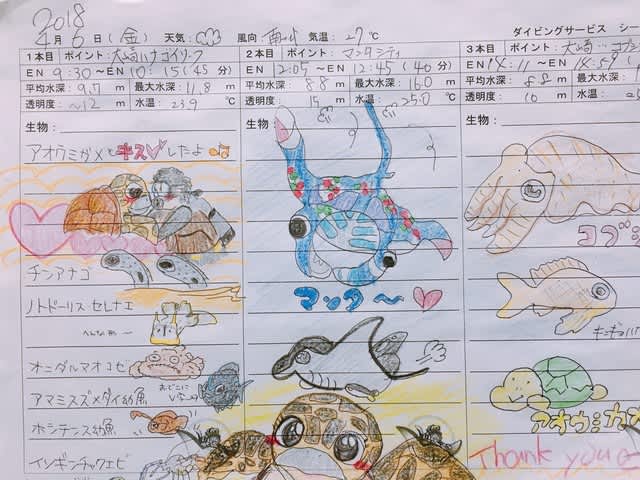 2018
4月6日(金) 天気: 風向 南 気温: 27℃
ダイビングサービス シー
1本目 ポイント: 大崎ハナゴイリーフ
EN 9:30 ～EN 10:15(45分)
平均水深: 9.7 m 最大水深: 11.8 m
透明度: ～12 m 水温: 23.9 ℃
生物:
アオウミガメとキスしたよ
チンアナゴ
ノトドーリス セレナエ
へんなの～
オニダルマオコゼ
アマミスズメダイ幼魚
おどこに
ホシテンス幼魚
イソギンチャクエビ
2本目 ポイント: マンタシティ
EN 12:05 ～EN 12:45(40分)
平均水深: 8.8 m 最大水深: 16.0 m
透明度: 15 m 水温: 25.0 ℃
生物
マンタ～
3本目 ポイント: 大崎
EN 14:11 ～EN 14:59
平均水深: 5.8 m 最大水深
透明度: 10 m 水温:
生物:
コブシ
アオウミガメ
Thank you